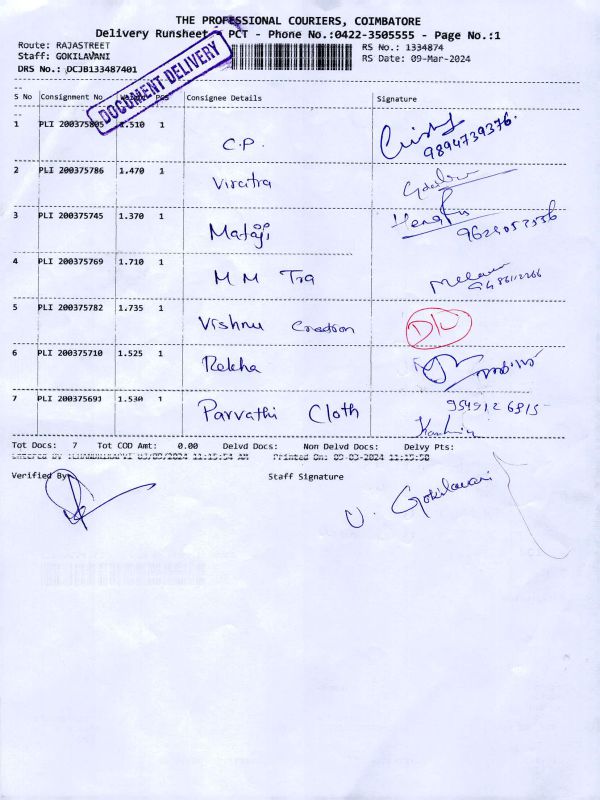 THE PROFESSIONAL COURIERS, COIMBATORE
Delivery Runsheet PCT - Phone No.:0422-3505555 - Page No.:1
Route: RAJASTREET
RS No.: 1334874
Staff: GOKILAVANI
RS Date: 09-Mar-2024
DRS No.: DCJB133487401
DOCUMENT DELIVERY
S No Consignment No Pcs Consignee Details Signature
1 PLI 200375805 1.510 1 C.P. 9894739376.
2 PLI 200375786 1.470 1
3 PLI 200375745 1.370 1 Mataji
4 PLI 200375769 1.710 1 M M Tra
5 PLI 200375782 1.735 1 Vishnu Creation
6 PLI 200375710 1.525 1 Rekha
7 PLI 200375693 1.530 1 Parvathi Cloth
Tot Docs: 7 Tot COD Amt: 0.00 Delvd Docs: Non Delvd Docs: Delvy Pts:
Printed On: 09-03-2024
Verified By Staff Signature
V. Gokilavani